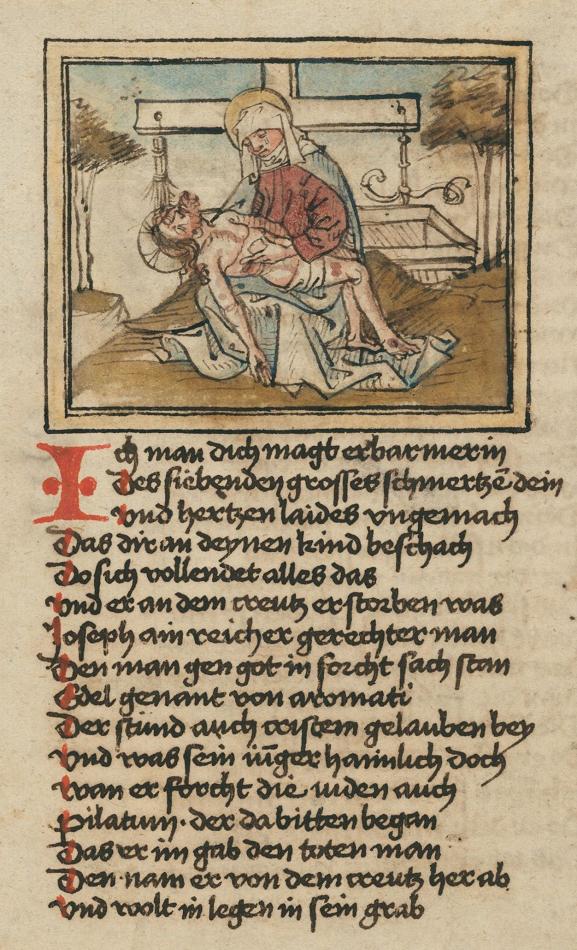 Ich man dich magt erbarmerin
Des siebenden grosses schmertzē dein
vnd hertzen laides vngemach
Das dir an deynen kind beschach
Do sich vollendet alles das
vnd er an dem creutz erstorben was
Joseph ain reicher gerechter man
Den man gen got in forcht sach stan
Edel genant von aromati
Der stund auch cristem gelauben bey
Vnd was sein iūger haimlich doch
wan er forcht die iuden auch
Pilatum · der da bitten began
Das er im gab den toten man
Den nam er von dem creutz her ab
vnd wolt in legen in sein grab